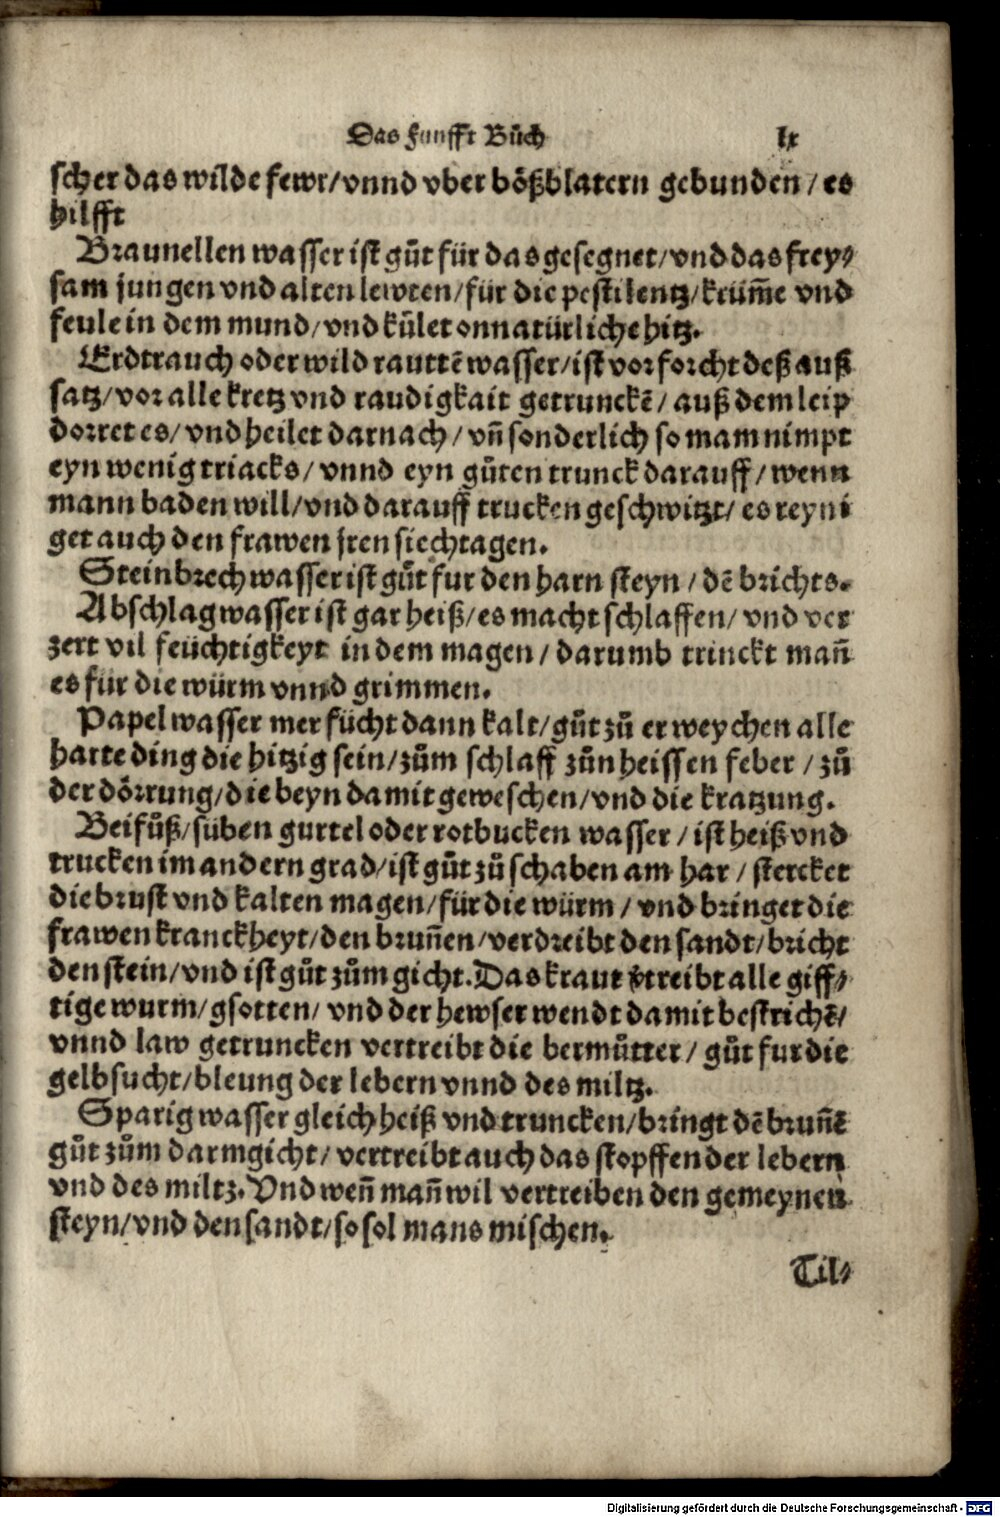 Das funfft Bůch lx
scher das wilde fewr/vnnd vber bößblatern gebunden/es
hilfft
Braunellen wasser ist gůt für das gesegnet/vnd das frey⸗
sam jungen vnd alten lewten/für die pestilentz/krüm̃e vnd
feule in dem mund/vnd kůlet onnatürliche hitz.
Erdtrauch oder wild rauttẽ wasser/ist vor forcht deß auß
satz/vor alle kretz vnd raudigkait getrunckẽ/auß dem leip
dorret es/vnd heilet darnach/vñ sonderlich so mam nimpt
eyn wenig triacks/vnnd eyn gůten trunck darauff/wenn
mann baden will/vnd darauff trucken geschwitzt/es reyni
get auch den frawen jren siechtagen.
Steinbrech wasser ist gůt fur den harn steyn/dẽ brichts.
Abschlag wasser ist gar heiß/es macht schlaffen/vnd ver
zert vil feüchtigkeyt in dem magen/darumb trinckt mañ
es für die würm vnnd grimmen.
Papel wasser mer fücht dann kalt/gůt zů erweychen alle
harte ding die hitzig sein/zům schlaff zůn heissen feber/zů
der dörrung/die beyn damit geweschen/vnd die kratzung.
Beifůß/süben gurtel oder rotbucken wasser/ist heiß vnd
trucken im andern grad/ist gůt zů schaben am har/stercket
die brust vnd kalten magen/für die würm/vnd bringet die
frawen kranckheyt/den bruñen/verdreibt den sandt/bricht
den stein/vnd ist gůt zům gicht. Das kraut vtreibt alle giff⸗
tige wurm/gsotten/vnd der hewser wendt damit bestrichẽ/
vnnd law getruncken vertreibt die bermůtter/gůt fur die
gelbsucht/bleung der lebern vnnd des miltz.
Sparig wasser gleich heiß vnd truncken/bringt dẽ bruñẽ
gůt zům darmgicht/vertreibt auch das stopffen der lebern
vnd des miltz. Vnd weñ mañ wil vertreiben den gemeynen
steyn/vnd den sandt/so sol mans mischen.
Til⸗
Digitalisierung gefördert durch die Deutsche Forschungsgemeinschaft - DFG